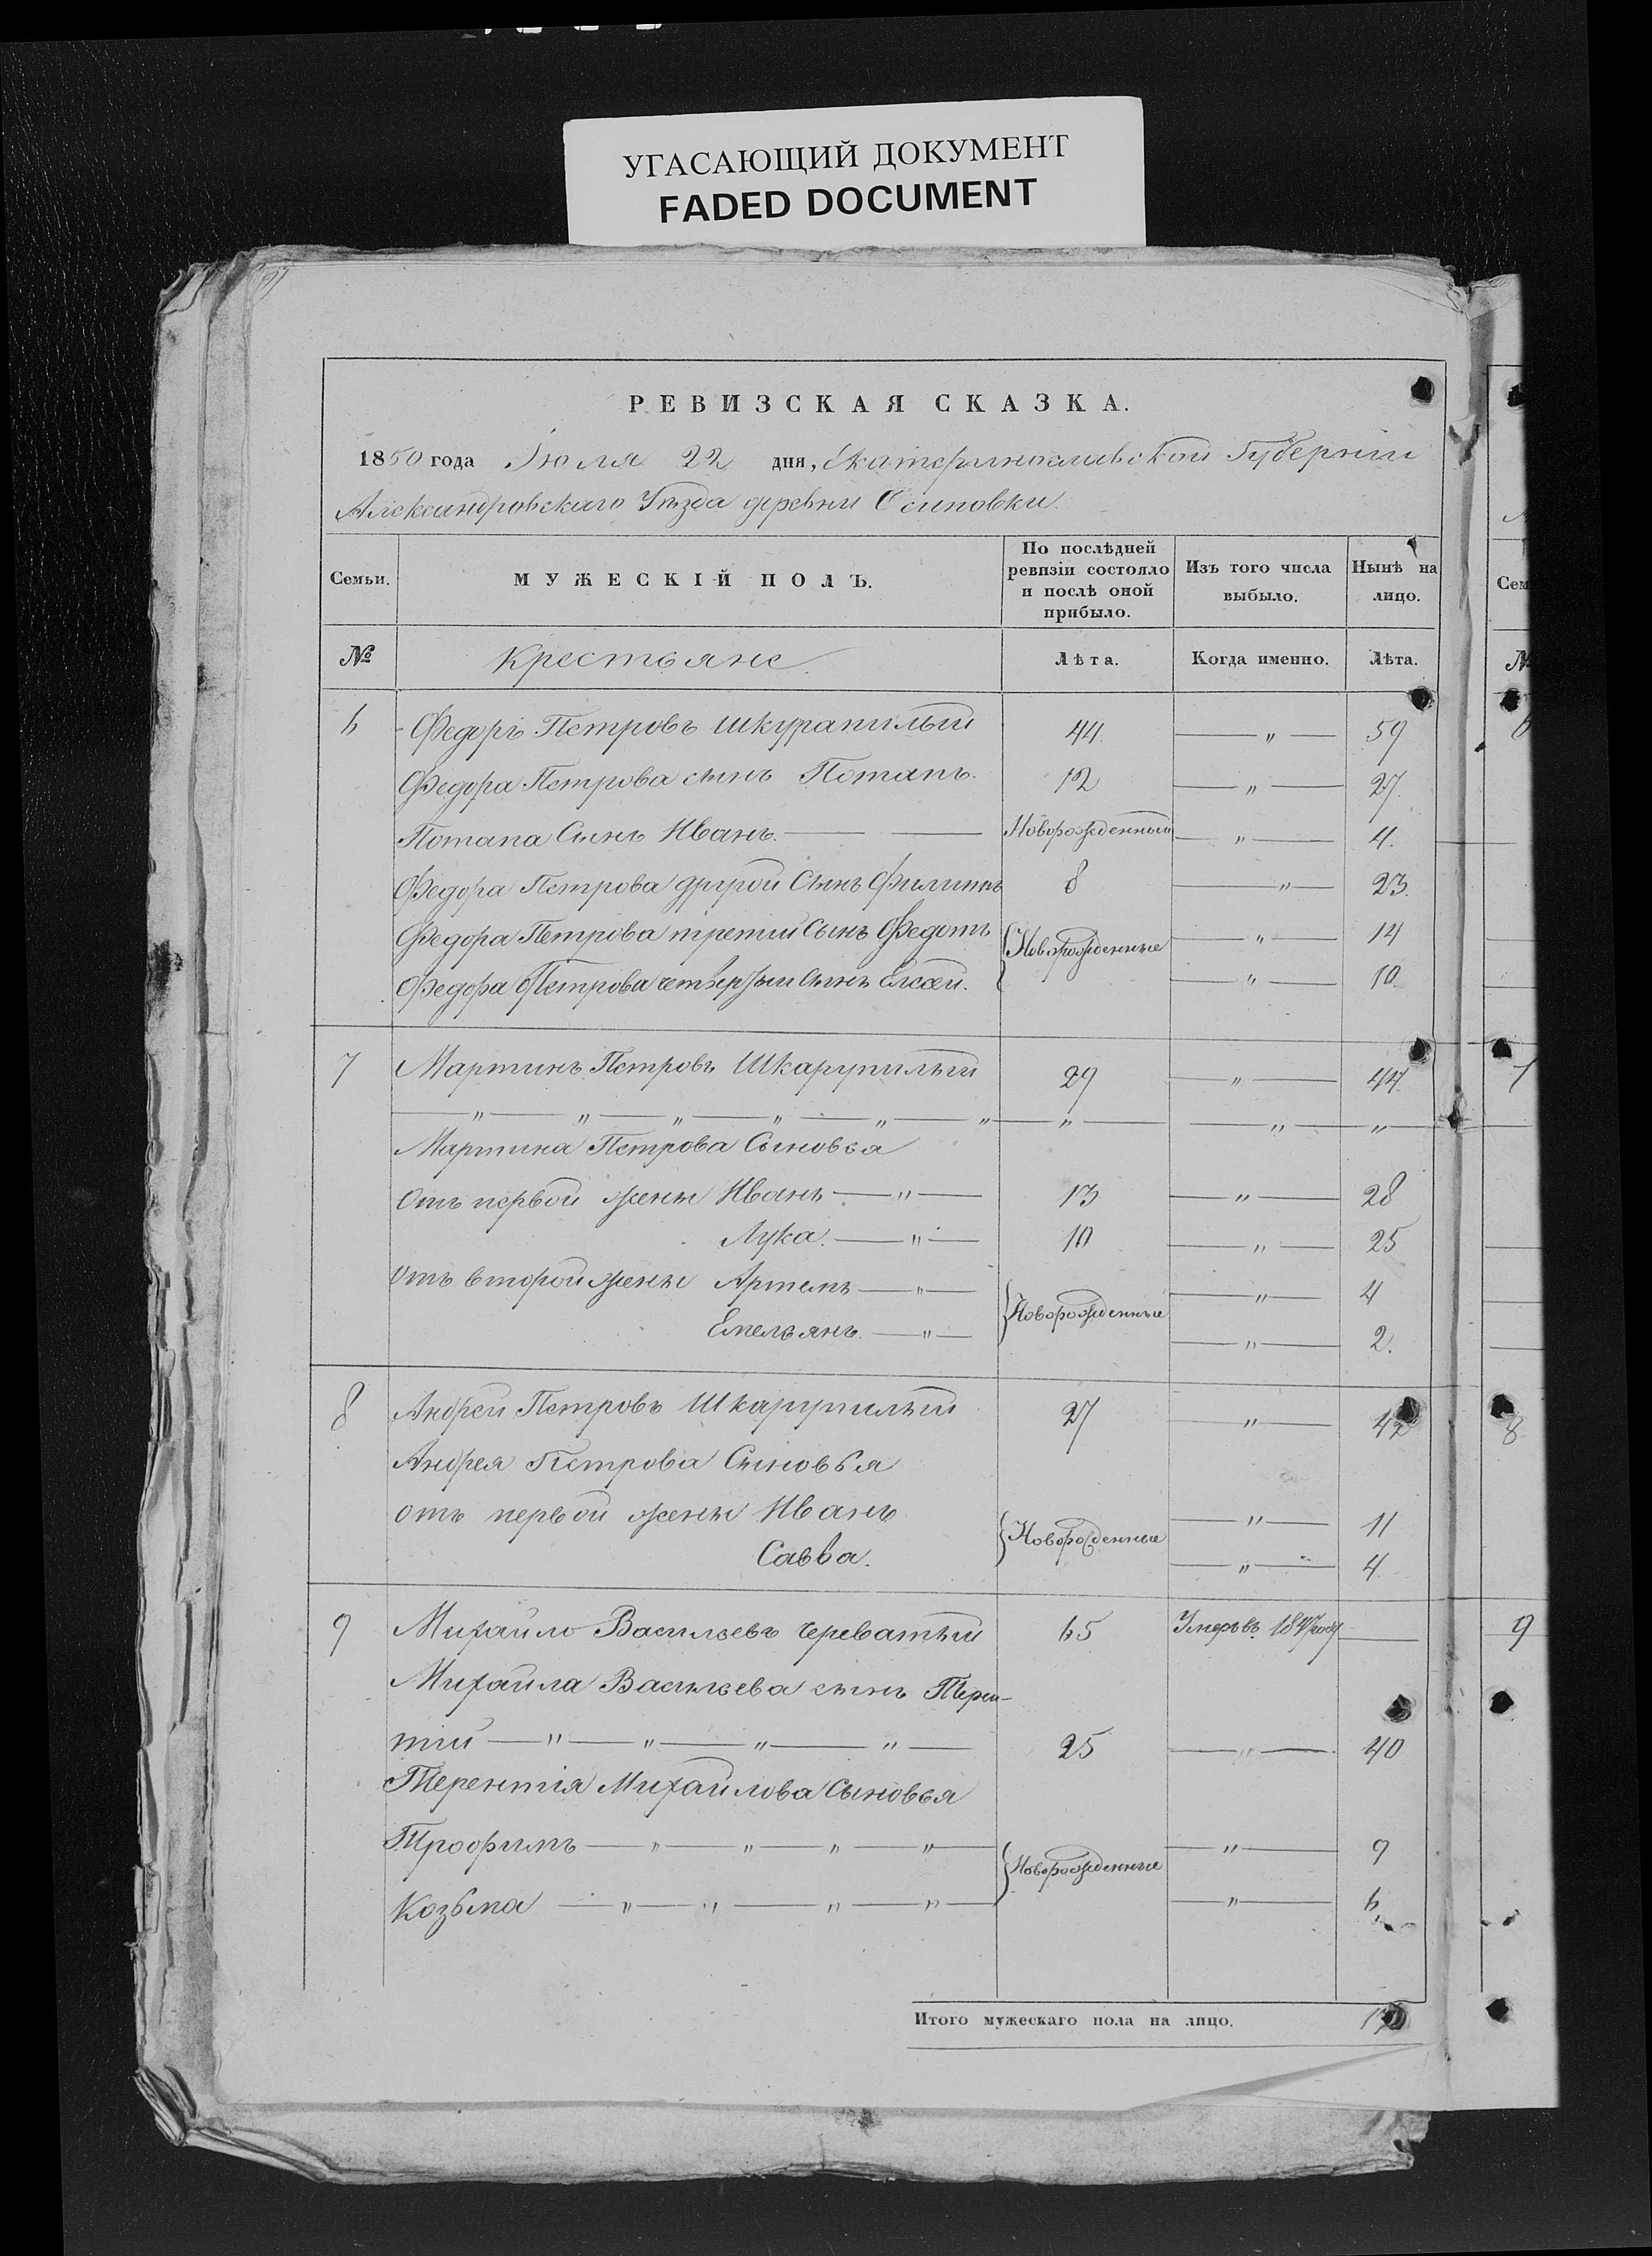 УГАСАЮЩИЙ ДОКУМЕНТ
FADED DOCUMENT
РЕВИЗСКАЯ СКАЗКА.
1850 года Июля 22 дня, Екатеринославской Губерніи
Александровскаго Уѣзда деревни Осиповки.
Семьи. МУЖЕСКІЙ ПОЛЪ. По послѣдней ревизіи состояло и послѣ оной прибыло. Изъ того числа выбыло. Нынѣ на лицо.
№ Крестьяне Лѣта. Когда именно. Лѣта.
6 Федоръ Петровъ Шкурапилый 44. — " — 59
Федора Петрова сынъ Потапъ. 12 — " — 27.
Потапа Сынъ Иванъ. — — Новорожденный — " — 4.
Федора Петрова другой Сынъ Филипъ 8 — " — 23.
Федора Петрова третий Сынъ Федотъ Новорожденные — " — 14
Федора Петрова четвертый сынъ — " — 10.
7 Мартинъ Петровъ Шкарупилый 29 — " — 44.
— " — " — " — " — " — " — " — " — " —
Мартина Петрова Сыновья
Отъ первой жены Иванъ — " — 13 — " — 28
Лука. — " — 10 — " — 25
Отъ второй жены Артемъ — " — Новорожденные — " — 4
Емельянъ. — " — — " — 2.
8 Андрей Петровъ Шкарупилый 27 — " — 42
Андрея Петрова Сыновья
отъ первой жены Иванъ Новорожденные — " — 11
Савва. — " — 4
9 Михайло Васильевъ Череватый 65 Умеръ въ 1847 году —
Михайла Васильева сынъ Терен-
тій — " — " — " — " — 25 — " — 40
Терентія Михайлова Сыновья
Трофимъ — " — " — " — " — Новорожденные — " — 9
Козьма — " — " — " — " — — " — 6
Итого мужескаго пола на лицо.
Сем
№
6
7
8
9